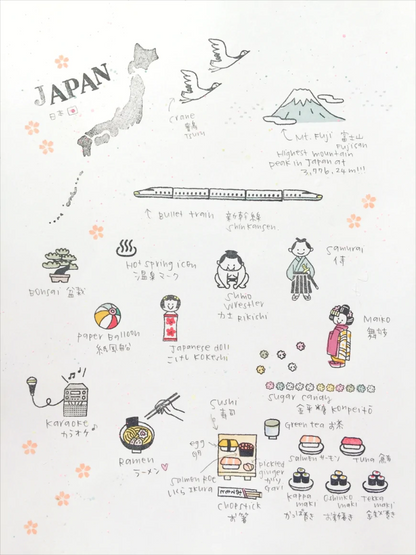 JAPAN
日本
crane
鶴
tsuru
Mt. Fuji 富士山
Fujisan
Highest mountain
peak in Japan at
3,776.24 m!!!
bullet train 新幹線
shinkansen
Bonsai 盆栽
Hot spring icon
温泉マーク
Sumo
wrestler
力士 Rikishi
Samurai
侍
Maiko
舞妓
paper balloon
紙風船
Japanese doll
こけし Kokeshi
sugar candy
金平糖 Konpeitō
Karaoke
カラオケ
Ramen
ラーメン
Sushi
寿司
egg
卵
salmon roe
いくら Ikura
pickled
ginger
ガリ Gari
chopstick
お箸
Green tea お茶
salmon サーモン
Tuna
Kappa
maki
かっぱ巻き
Oshinko
maki
Tekka
maki